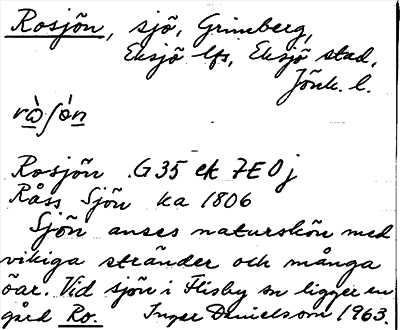 Rosjön, sjö, Grimberg,
Eksjö lfs, Eksjö stad,
Jönk. l.
rò̱ʃó̱n
Rosjön G35 ek 7E0j
Råss Sjön ka 1806
Sjön anses naturskön med
vikiga stränder och många
öar. Vid sjön i Flisby sn ligger en
gård Ro. Inger Danielsson 1963.